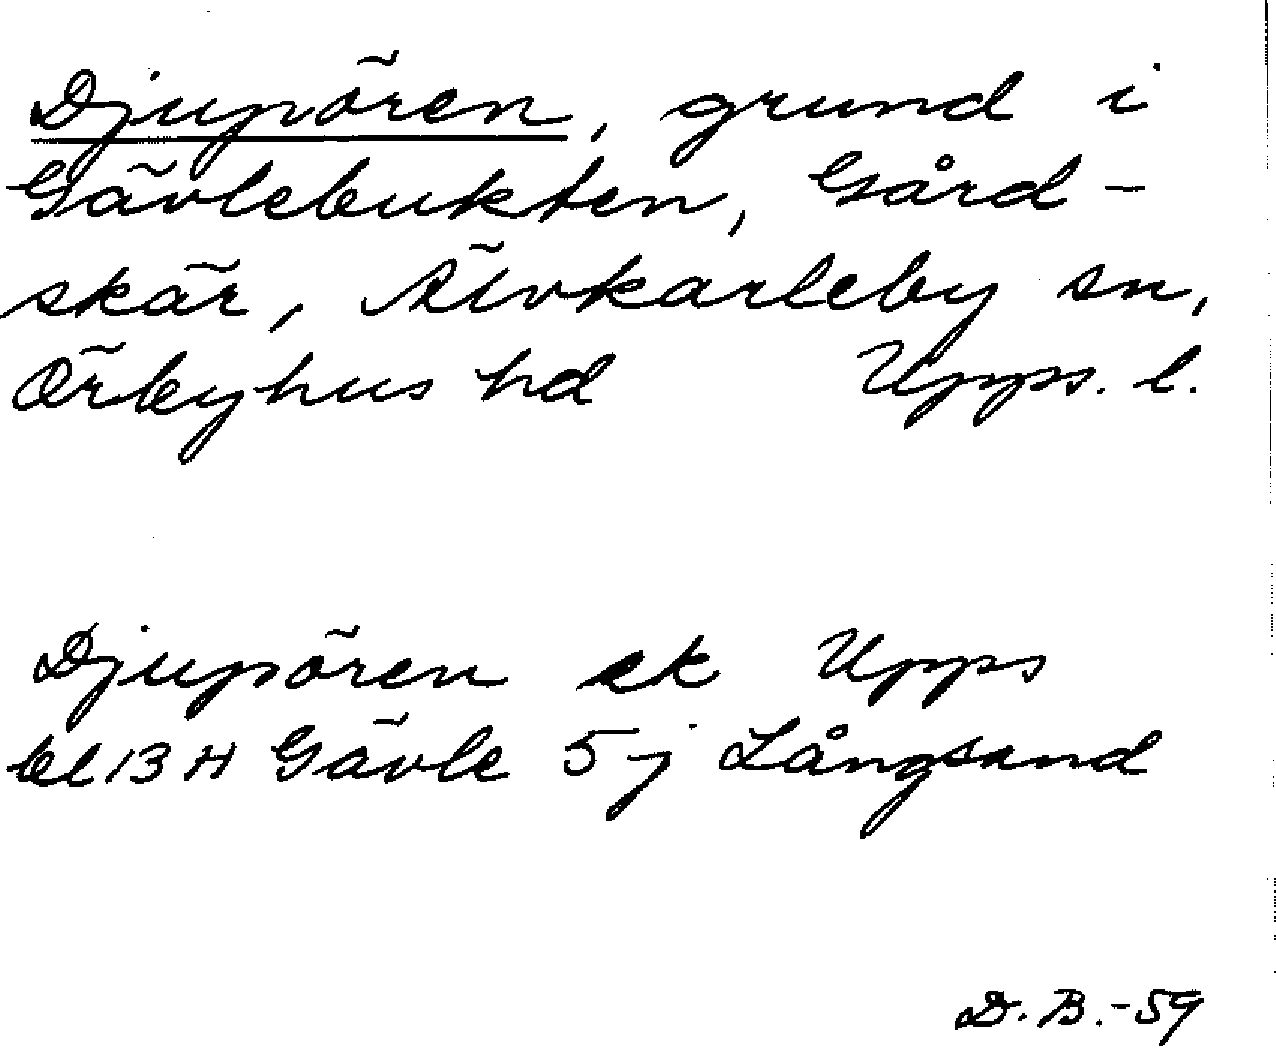 Djupören, grund i
Gävlebukten, Gård-
skär, Älvkarleby sn,
Örbyhus hd Upps. l.
Djupören ek Upps
bl 13 H Gävle 5 j Långsand
D. B. -59